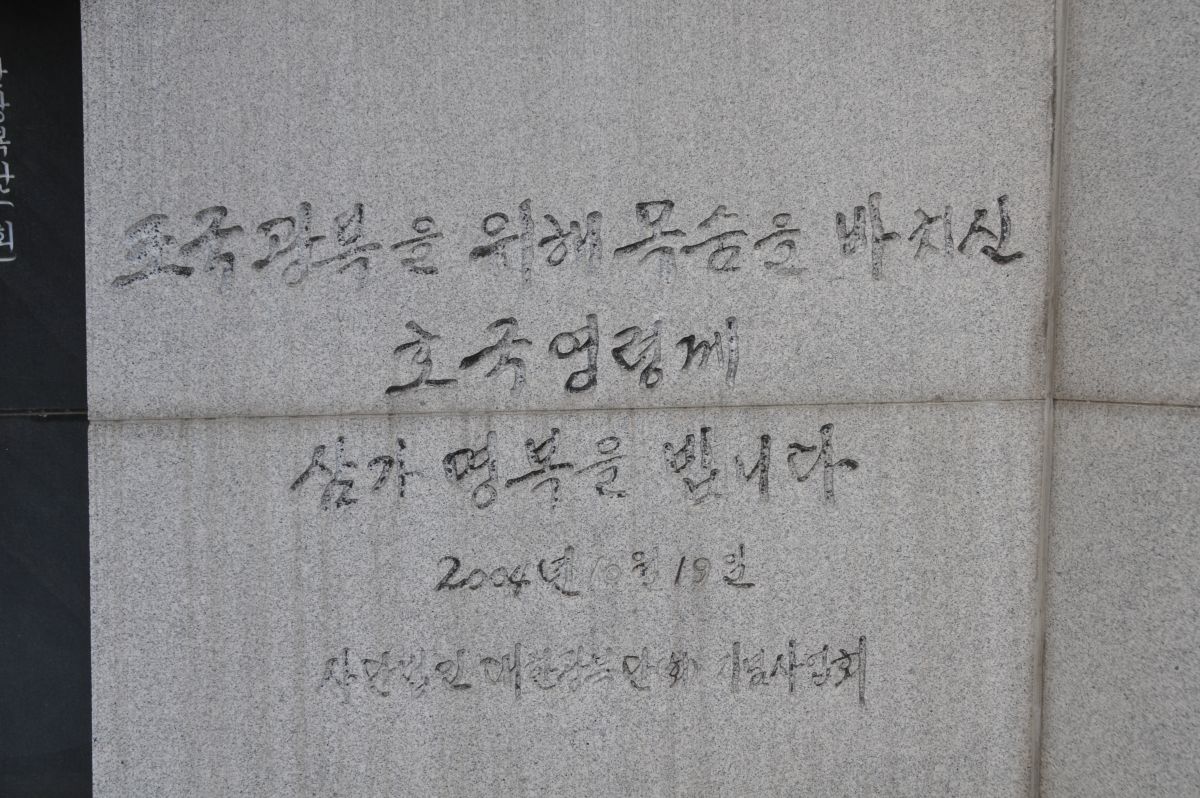 조국광복을 위해 목숨을 바치신
호국영령께
삼가 명복을 빕니다
2004년 10월 19일
사단법인 대한광복단(회) 기념사업회